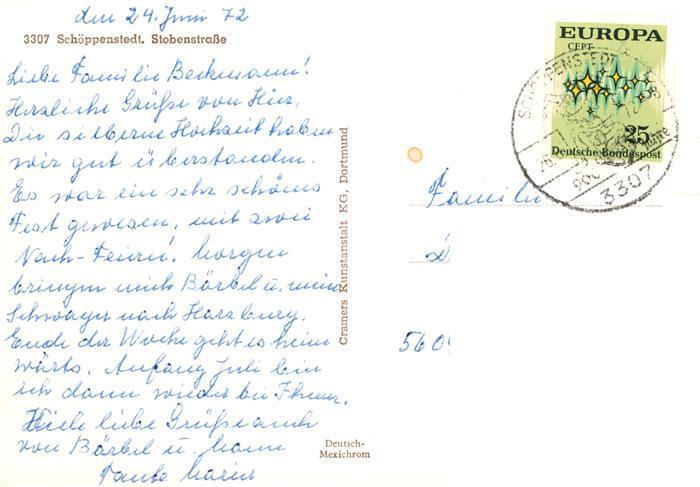 den 24. Juni 72
3307 Schöppenstedt. Stobenstraße
Liebe Familie Beckmann!
Herzliche Grüße von Hier.
Die silberne Hochzeit haben
wir gut überstanden.
Es war ein sehr schönes
Fest gewesen, mit zwei
Nach-Feiern! Morgen
bringen mich Bärbel u. mein
Schwager nach Harzburg.
Ende der Woche geht es heim
wärts. Anfang Juli bin
ich dann wieder bei Ihnen.
Viele liebe Grüße auch
von Bärbel u. Mann
Tante Marie
Cramers Kunstanstalt KG, Dortmund
Deutsch-
Mexichrom
EUROPA
CEPT
25
Deutsche Bundespost
SCHÖPPENSTEDT
3307
Familie
560